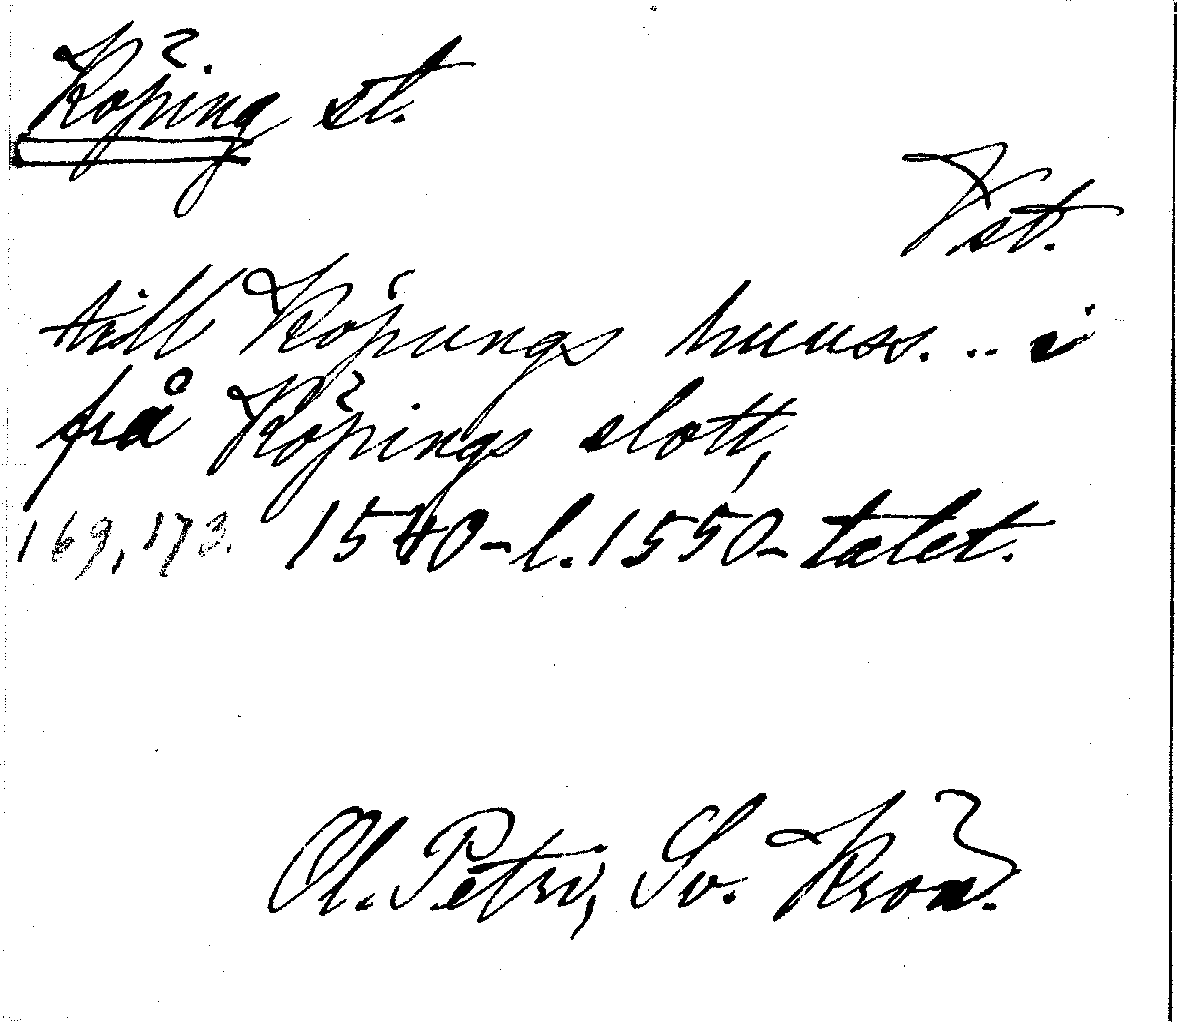 Köping st.
Vst.
till Köpungs huuss. .. i
frå Köpings slott,
169, 173. 1540- l. 1550-talet.
Ol. Petri, Sv. Krön.